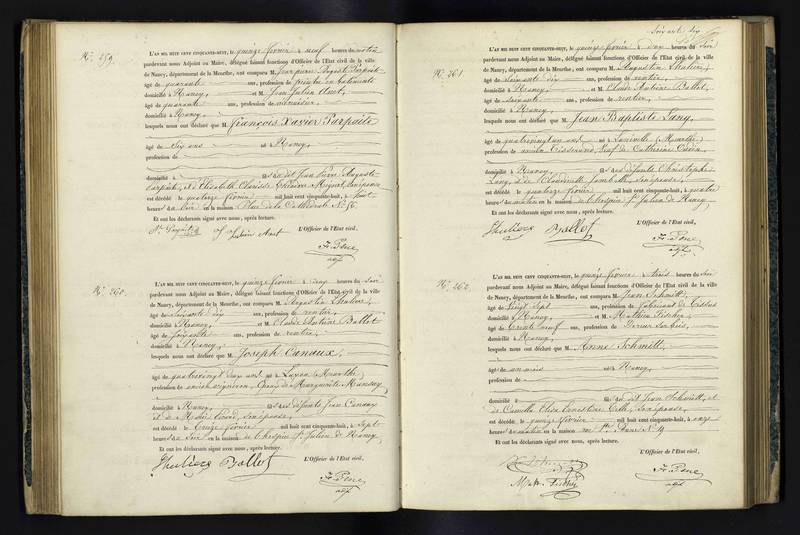 N° 259.
L'AN MIL HUIT CENT CINQUANTE-HUIT, le quinze février à neuf heures du matin
pardevant nous Adjoint au Maire, délégué faisant fonctions d'Officier de l'Etat civil de la ville
de Nancy, département de la Meurthe, ont comparu M. Jean pierre Auguste Parpaite
âgé de quarante ans, profession de peintre en bâtiments
domicilié à Nancy, et M. Jean Julien
âgé de quarante ans, profession de menuisier,
domicilié à Nancy,
lesquels nous ont déclaré que M. François Xavier Parpaite
âgé de six ans né à Nancy,
profession de
domicilié à fils de dit Jean Pierre Auguste
Parpaite, et d'Elisabeth Miquel, son épouse
est décédé le quatorze février mil huit cent cinquante-huit, à huit
heures du soir en la maison Place de la Cathédrale N° 56.
Et ont les déclarants signé avec nous, après lecture.
L'Officier de l'Etat civil,
adjt
N° 260.
L'AN MIL HUIT CENT CINQUANTE-HUIT, le quinze février à dix heures du
pardevant nous Adjoint au Maire, délégué faisant fonctions d'Officier de l'Etat civil de la ville
de Nancy, département de la Meurthe, ont comparu M. Augustin
âgé de soixante dix ans, profession de rentier,
domicilié à Nancy, et M. Claude Antoine Ballot
âgé de soixante ans, profession de rentier,
domicilié à Nancy,
lesquels nous ont déclaré que M. Joseph
âgé de quatrevingt deux ans né à (Meurthe)
profession de ancien vigneron, époux de Marguerite
domicilié à Nancy, fils des défunts Jean
et de Marie son épouse,
est décédé le treize février mil huit cent cinquante-huit, à sept
heures du soir en la maison de l'hospice St Julien de Nancy
Et ont les déclarants signé avec nous, après lecture.
L'Officier de l'Etat civil,
Ballot
adjt
soixante dix
N° 261.
L'AN MIL HUIT CENT CINQUANTE-HUIT, le quinze février à dix heures du
pardevant nous Adjoint au Maire, délégué faisant fonctions d'Officier de l'Etat civil de la ville
de Nancy, département de la Meurthe, ont comparu M. Augustin
âgé de soixante dix ans, profession de rentier,
domicilié à Nancy, et M. Claude Antoine Ballot,
âgé de soixante ans, profession de rentier,
domicilié à Nancy,
lesquels nous ont déclaré que M. Jean Baptiste Lang,
âgé de quatrevingt un ans né à Lunéville (Meurthe)
profession de ancien tisserand, veuf de Catherine
domicilié à Nancy, fils des défunts Christophe
Lang, et de son épouse,
est décédé le quatorze février mil huit cent cinquante-huit, à quatre
heures du matin en la maison de l'hospice St Julien de Nancy
Et ont les déclarants signé avec nous, après lecture.
L'Officier de l'Etat civil,
Ballot
adjt
N° 262.
L'AN MIL HUIT CENT CINQUANTE-HUIT, le quinze février à trois heures du soir
pardevant nous Adjoint au Maire, délégué faisant fonctions d'Officier de l'Etat civil de la ville
de Nancy, département de la Meurthe, ont comparu M. Jean Schmitt,
âgé de vingt sept ans, profession de fabricant de tissus
domicilié à Nancy, et M. Mathieu Fischer,
âgé de trente neuf ans, profession de
domicilié à Nancy,
lesquels nous ont déclaré que M. Anne Schmitt,
âgé de un mois né à Nancy,
profession de
domicilié à fille de dit Jean Schmitt, et
de Camille Elisa Ernestine son épouse
est décédé le quinze février mil huit cent cinquante-huit, à onze
heures du matin en la maison rue St Dizier N° 19
Et ont les déclarants signé avec nous, après lecture.
L'Officier de l'Etat civil,
adjt